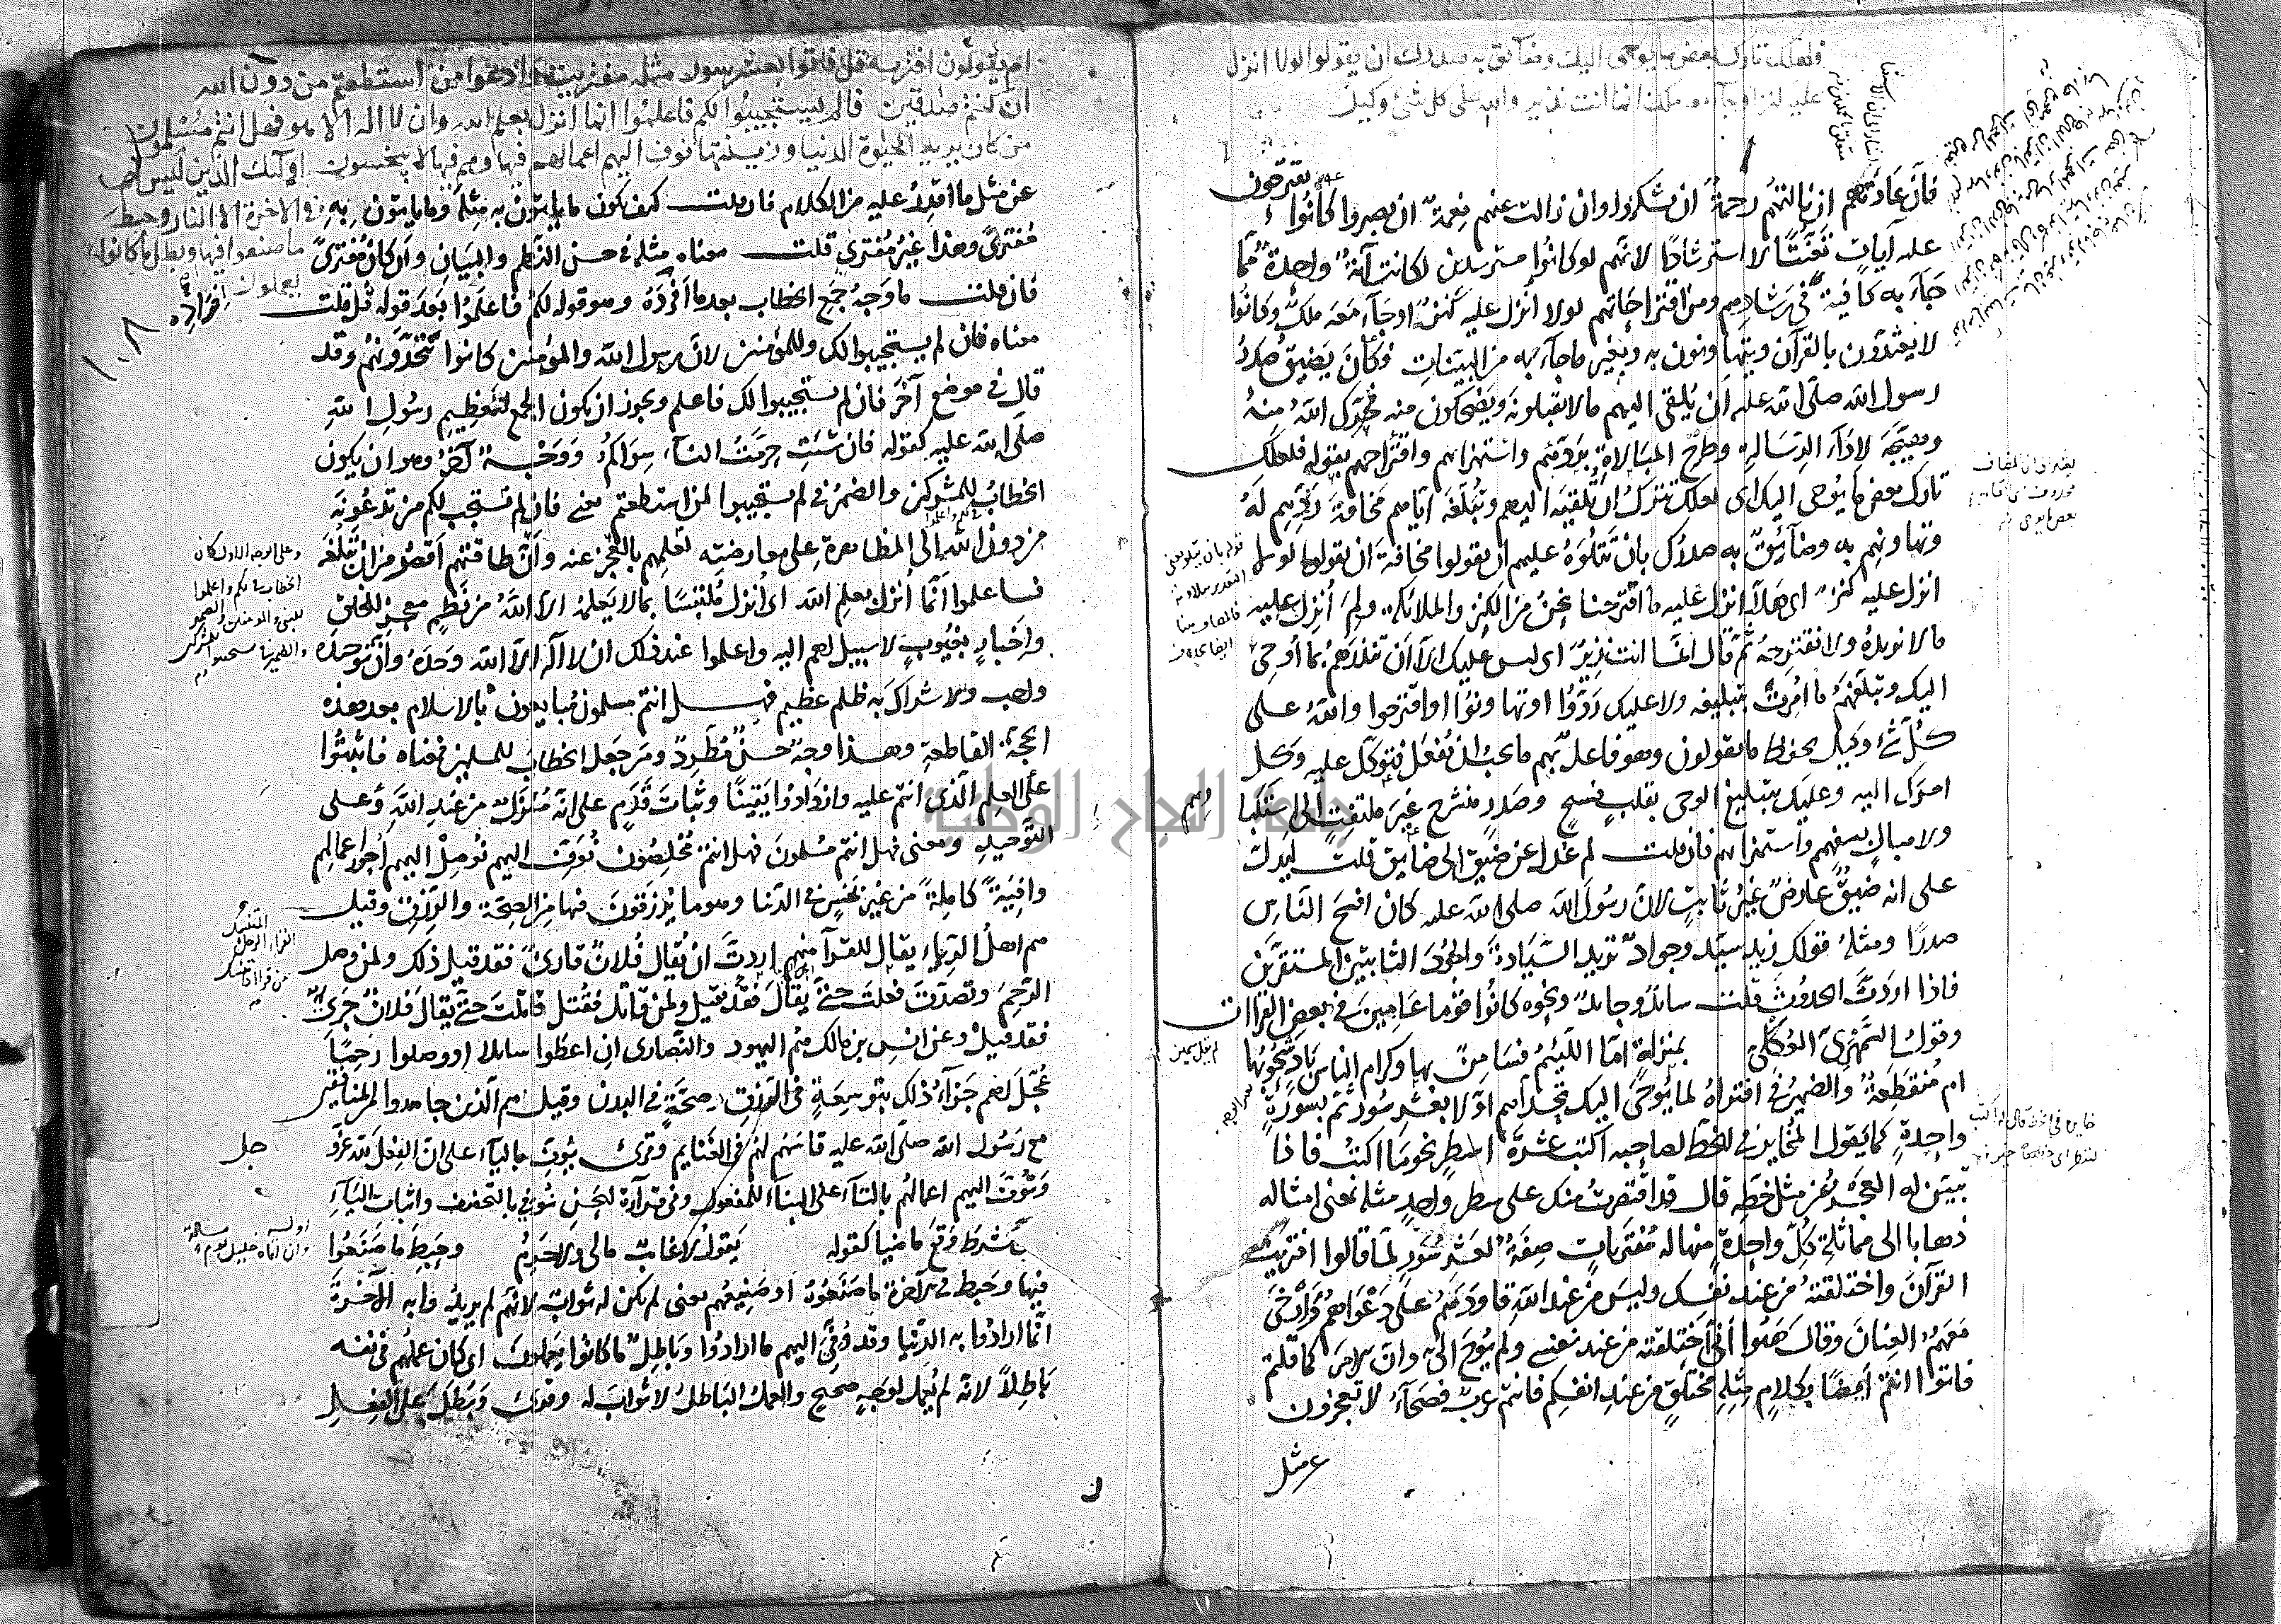 فلعلك تارك بعض ما يوحى اليك وضائق به صدرك ان يقولوا لولا انزل
عليه كنز او جاء معه ملك انما انت نذير والله على كل شئ وكيل
فان عادتهم ان نالتهم رحمة ان يشكروا وان زالت عنهم نعمة ان يصبروا كانوا يقترحون
عليه آيات تعنتا لا استرشادا لانهم لو كانوا مسترشدين لكانت آية واحدة مما
جاء به كافية في رشادهم ومن اقتراحاتهم لولا انزل عليه كنز او جاء معه ملك وكانوا
لا يعتدون بالقرآن ويتهاونون به وبغيره مما جاء به من البينات فكان يضيق صدر
رسول الله صلى الله عليه ان يلقى اليهم ما لا يقبلونه ويضحكون منه فحرك الله منه
وهيجه لاداء الرسالة وطرح المبالاة بردهم واستهزائهم واقتراحهم بقوله فلعلك
تارك بعض ما يوحى اليك اى لعلك تترك ان تلقيه اليهم وتبلغه اياهم مخافة ردهم له
وتهاونهم به وضائق به صدرك بان تتلوه عليهم ان يقولوا مخافة ان يقولوا لولا
انزل عليه كنز اى هلا انزل عليه ما اقترحنا نحن من الكنز والملائكة ولم انزل عليه
ما لا نريده ولا نقترحه ثم قال انما انت نذير اى ليس عليك الا ان تنذرهم بما أوحى
اليك وتبلغهم ما امرت بتبليغه ولا عليك ردوا او تهاونوا او اقترحوا والله على
كل شئ وكيل يحفظ ما يقولون وهو فاعل بهم ما يجب ان يفعل فتوكل عليه وكل
امرك اليه وعليك بتبليغ الوحى بقلب فسيح وصدر منشرح غير ملتفت الى استكبارهم
ولا مبال بسفههم واستهزائهم فان قلت لم عدل عن ضيق الى ضائق قلت ليدل
على انه ضيق عارض غير ثابت لان رسول الله صلى الله عليه كان افسح الناس
صدرا ومثله قولك زيد سيد وجواد تريد السيادة والجود الثابتين المستقرين
فاذا اردت الحدوث قلت سائد وجائد ونحوه كانوا قوما عامين في بعض القراات
وقول السمهرى العكلى بمنزلة اما اللئيم فسامن بها وكرام الناس باد شحوبها
ام منقطعة والضمير في افتراه لما يوحى اليك تحداهم اولا بعشر سور ثم بسورة
واحدة كما يقول المخاير في الخط لصاحبه اكتب عشرة اسطر نحو ما اكتب فاذا
تبين له العجز عن مثل خطه قال قد اقتصرت منك على سطر واحد مثله بمعنى امثاله
ذهابا الى مماثلة كل واحدة منها له مفتريات صفة لعشر سور لما قالوا افتريت
القرآن واختلقته من عند نفسك وليس من عند الله قاودهم على دعواهم وارخى
معهم العنان وقال هبوا أنى اختلقته من عند نفسى ولم يوح الى وان الامر كما قلتم
فاتوا انتم أيضا بكلام مثله مختلق من عند انفسكم فانتم عرب فصحاء لا تعجزون
عن مثل
ام يقولون افتريه قل فاتوا بعشر سور مثله مفتريت وادعوا من استطعتم من دون الله
ان كنتم صدقين فالم يستجيبوا لكم فاعلموا انما انزل بعلم الله وان لا اله الا هو فهل انتم مسلمون
من كان يريد الحيوة الدنيا وزينتها نوف اليهم اعمالهم فيها وهم فيها لا يبخسون اولئك الذين ليس لهم
في الاخرة الا النار وحبط
ما صنعوا فيها وبطل ما كانوا
يعملون
عن مثل ما اقدر عليه من الكلام فان قلت كيف يكون ما ياتون به مثله وما ياتون به
مفترى وهذا غير مفترى قلت معناه مثله في حسن النظم والبيان وان كان مفترى
فان قلت ما وجه جمع الخطاب بعد افراده وهو قوله لكم فاعلموا بعد قوله قل قلت
١٠٨
معناه فان لم يستجيبوا لك وللمؤمنين لان رسول الله والمؤمنين كانوا يتحدونهم وقد
قال في موضع آخر فان لم يستجيبوا لك فاعلم ويجوز ان يكون الجمع لتعظيم رسول الله
صلى الله عليه كقوله فان شئت حرمت النساء سواكم ووجه آخر وهو ان يكون
الخطاب للمشركين والضمير في لم يستجيبوا لمن استطعتم يعنى فان لم يستجب لكم من تدعونه
من دون الله الى المظاهرة على معارضته لعلمهم بالعجز عنه وان طاقتهم اقصر من ان تبلغه
فاعلموا انما أنزل بعلم الله اى انزل ملتبسا بما لا يعلمه الا الله من نظم معجز للخلق
واخبار بغيوب لا سبيل لهم اليه واعلموا عند ذلك ان لا اله الا الله وحده وان توحيده
واجب والاشراك به ظلم عظيم فهل انتم مسلمون مبايعون بالاسلام بعد هذه
الحجة القاطعة وهذا وجه حسن مطرد ومن جعل الخطاب للمسلمين فمعناه فاثبتوا
على العلم الذى انتم عليه وازدادوا يقينا وثبات قدم على انه منزل من عند الله وعلى
التوحيد ومعنى فهل انتم مسلمون فهل انتم مخلصون نوف اليهم نوصل اليهم أجور اعمالهم
وافية كاملة من غير بخس في الدنيا وهو ما يرزقون فيها من الصحة والرزق وقيل
هم اهل الرياء يقال للقراء منهم اردت ان يقال فلان قارئ فقد قيل ذلك ولمن وصل
الرحم وتصدق فعلت حتى يقال فقد قيل ولمن قاتل فقتل قاتلت حتى يقال فلان جرئ
فقد قيل وعن انس بن مالك هم اليهود والنصارى ان اعطوا سائلا او وصلوا رحما
عجل لهم جزاء ذلك بتوسعة في الرزق وصحة في البدن وقيل هم الذين جاهدوا من المنافقين
مع رسول الله صلى الله عليه فاسهم لهم في الغنايم وقرئ يوف بالياء على ان الفعل لله عز وجل
وتوف اليهم اعمالهم بالتاء على البناء للمفعول وفى قراءة الحسن نوفى بالتخفيف واثبات الياء
لان الشرط وقع ماضيا كقوله يقول لا غائب مالى ولا حرم وحبط ما صنعوا
فيها وحبط في الآخرة ما صنعوه او صنيعهم يعنى لم يكن له ثواب لانهم لم يريدوا به الآخرة
انما ارادوا به الدنيا وقد وفى اليهم ما ارادوا وباطل ما كانوا يعملون اى كان عملهم في نفسه
باطلا لانه لم يعمل لوجه صحيح والعمل الباطل لا ثواب له وقرئ وبطل على الفعل
جامعة النجاح الوطنية